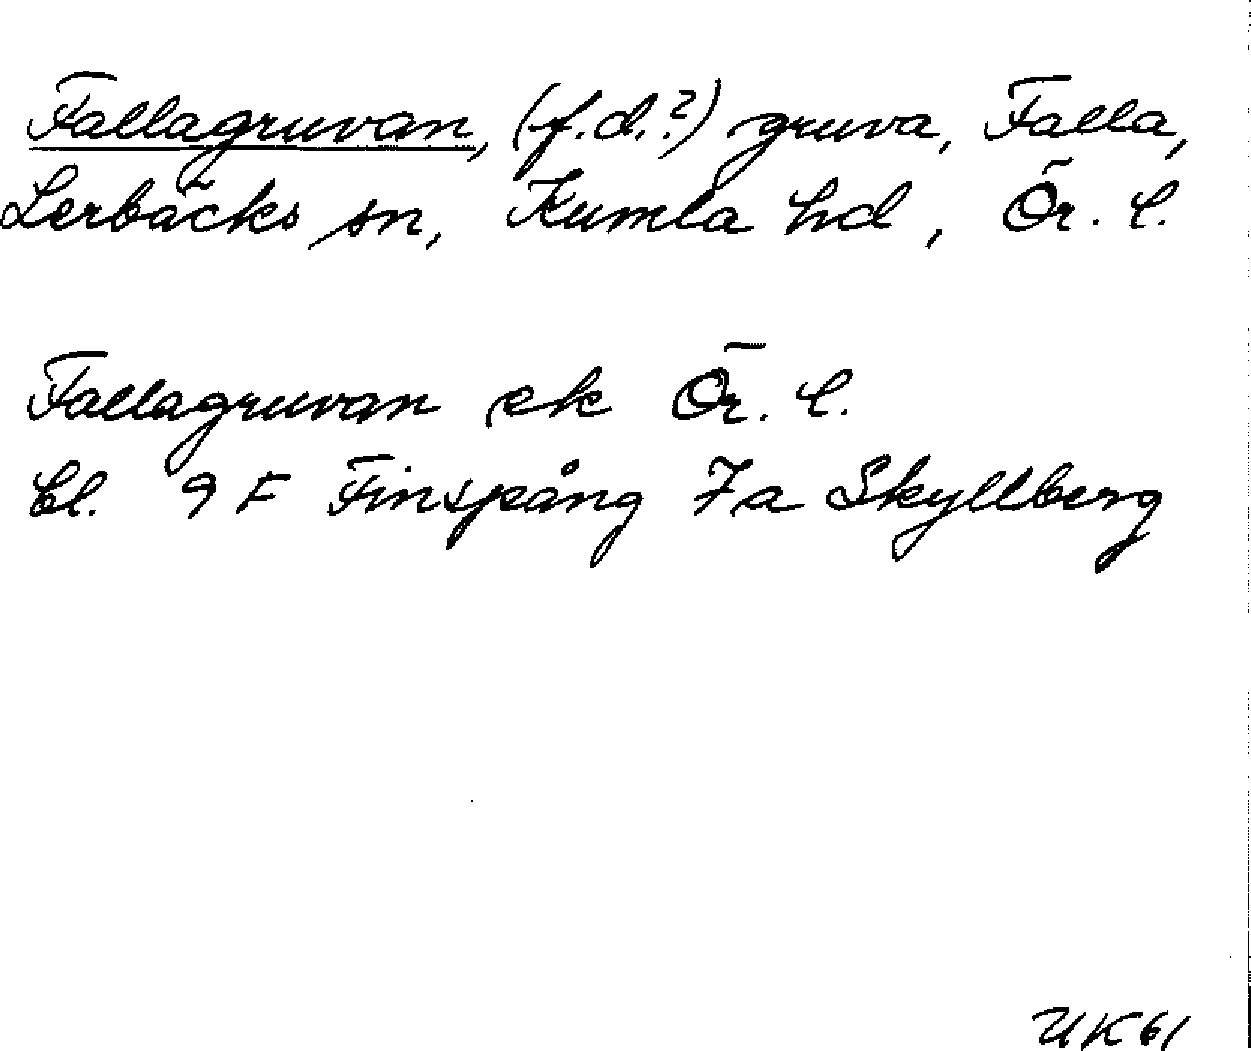 Fallagruvan, (f.d.?) gruva, Falla,
Lerbäcks sn, Kumla hd, Ör. l.
Fallagruvan ek Ör. l.
bl. 9 F Finspång 7a Skyllberg
UK61